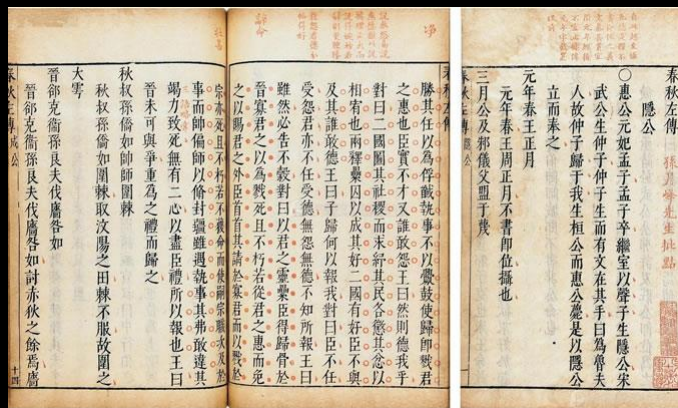 春秋左傳
孫月峰先生批點
隱公
○惠公元妃孟子孟子卒繼室以聲子生隱公宋
武公生仲子仲子生而有文在其手曰為魯夫
人故仲子歸于我生桓公而惠公薨是以隱公
立而奉之
元年春王正月
元年春王周正月不書即位攝也
三月公及邾儀父盟于蔑
春秋左傳 隱公
春秋左傳
勝其任以為俘馘執事不以釁鼓使歸即戮君
之惠也臣實不才又誰敢怨王曰然則德我乎
對曰二國圖其社稷而求紓其民各懲其忿以
相宥也兩釋纍囚以成其好二國有好臣不與
及其誰敢德王曰子歸何以報我對曰臣不任
受怨君亦不任受德無怨無德不知所報王曰
雖然必告不穀對曰以君之靈纍臣得歸骨於
晉寡君之以為戮死且不朽若從君之惠而免
之以賜君之外臣首首其請於寡君而以戮於
宗亦死且不朽若不獲命而使嗣宗職次及於
事而帥偏師以脩封疆雖遇執事其弗敢違其
竭力致死無有二心以盡臣禮所以報也王曰
晉未可與爭重為之禮而歸之
秋叔孫僑如帥師圍棘
秋叔孫僑如圍棘取汶陽之田棘不服故圍之
大雩
晉郤克衞孫良夫伐廧咎如
晉郤克衞孫良夫伐廧咎如討赤狄之餘焉廧
春秋左傳 成公 十四